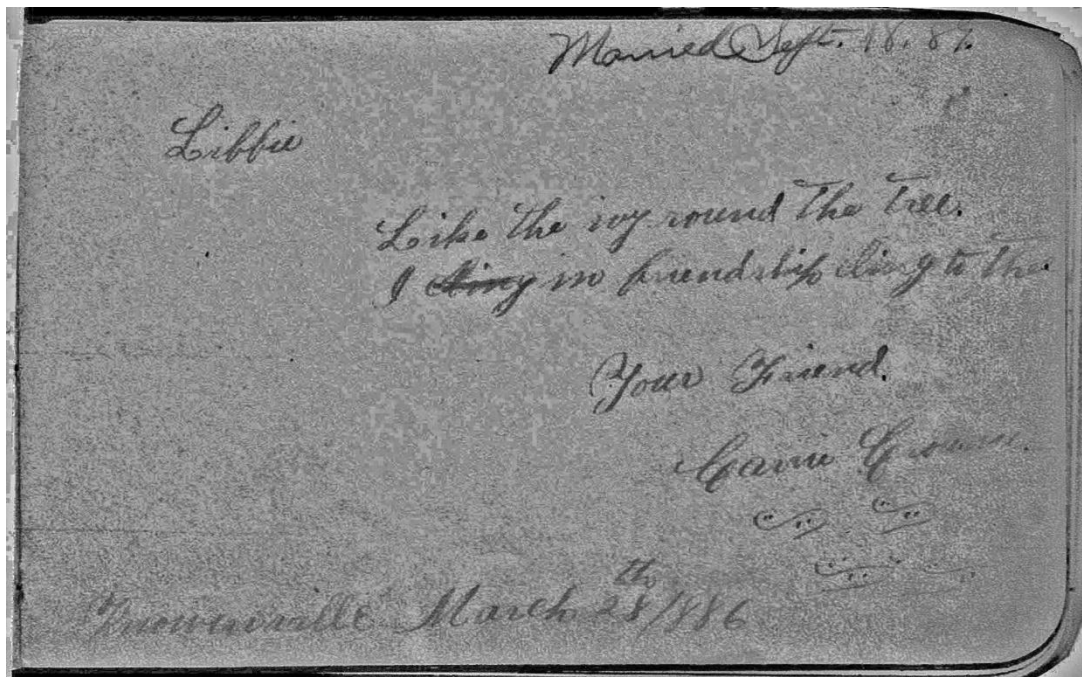 Married Sept. 18. 87.
Libbie
Like the ivy round the tree.
I cling in friendship cling to thee
Your Friend.
Carrie
March 28th/1886